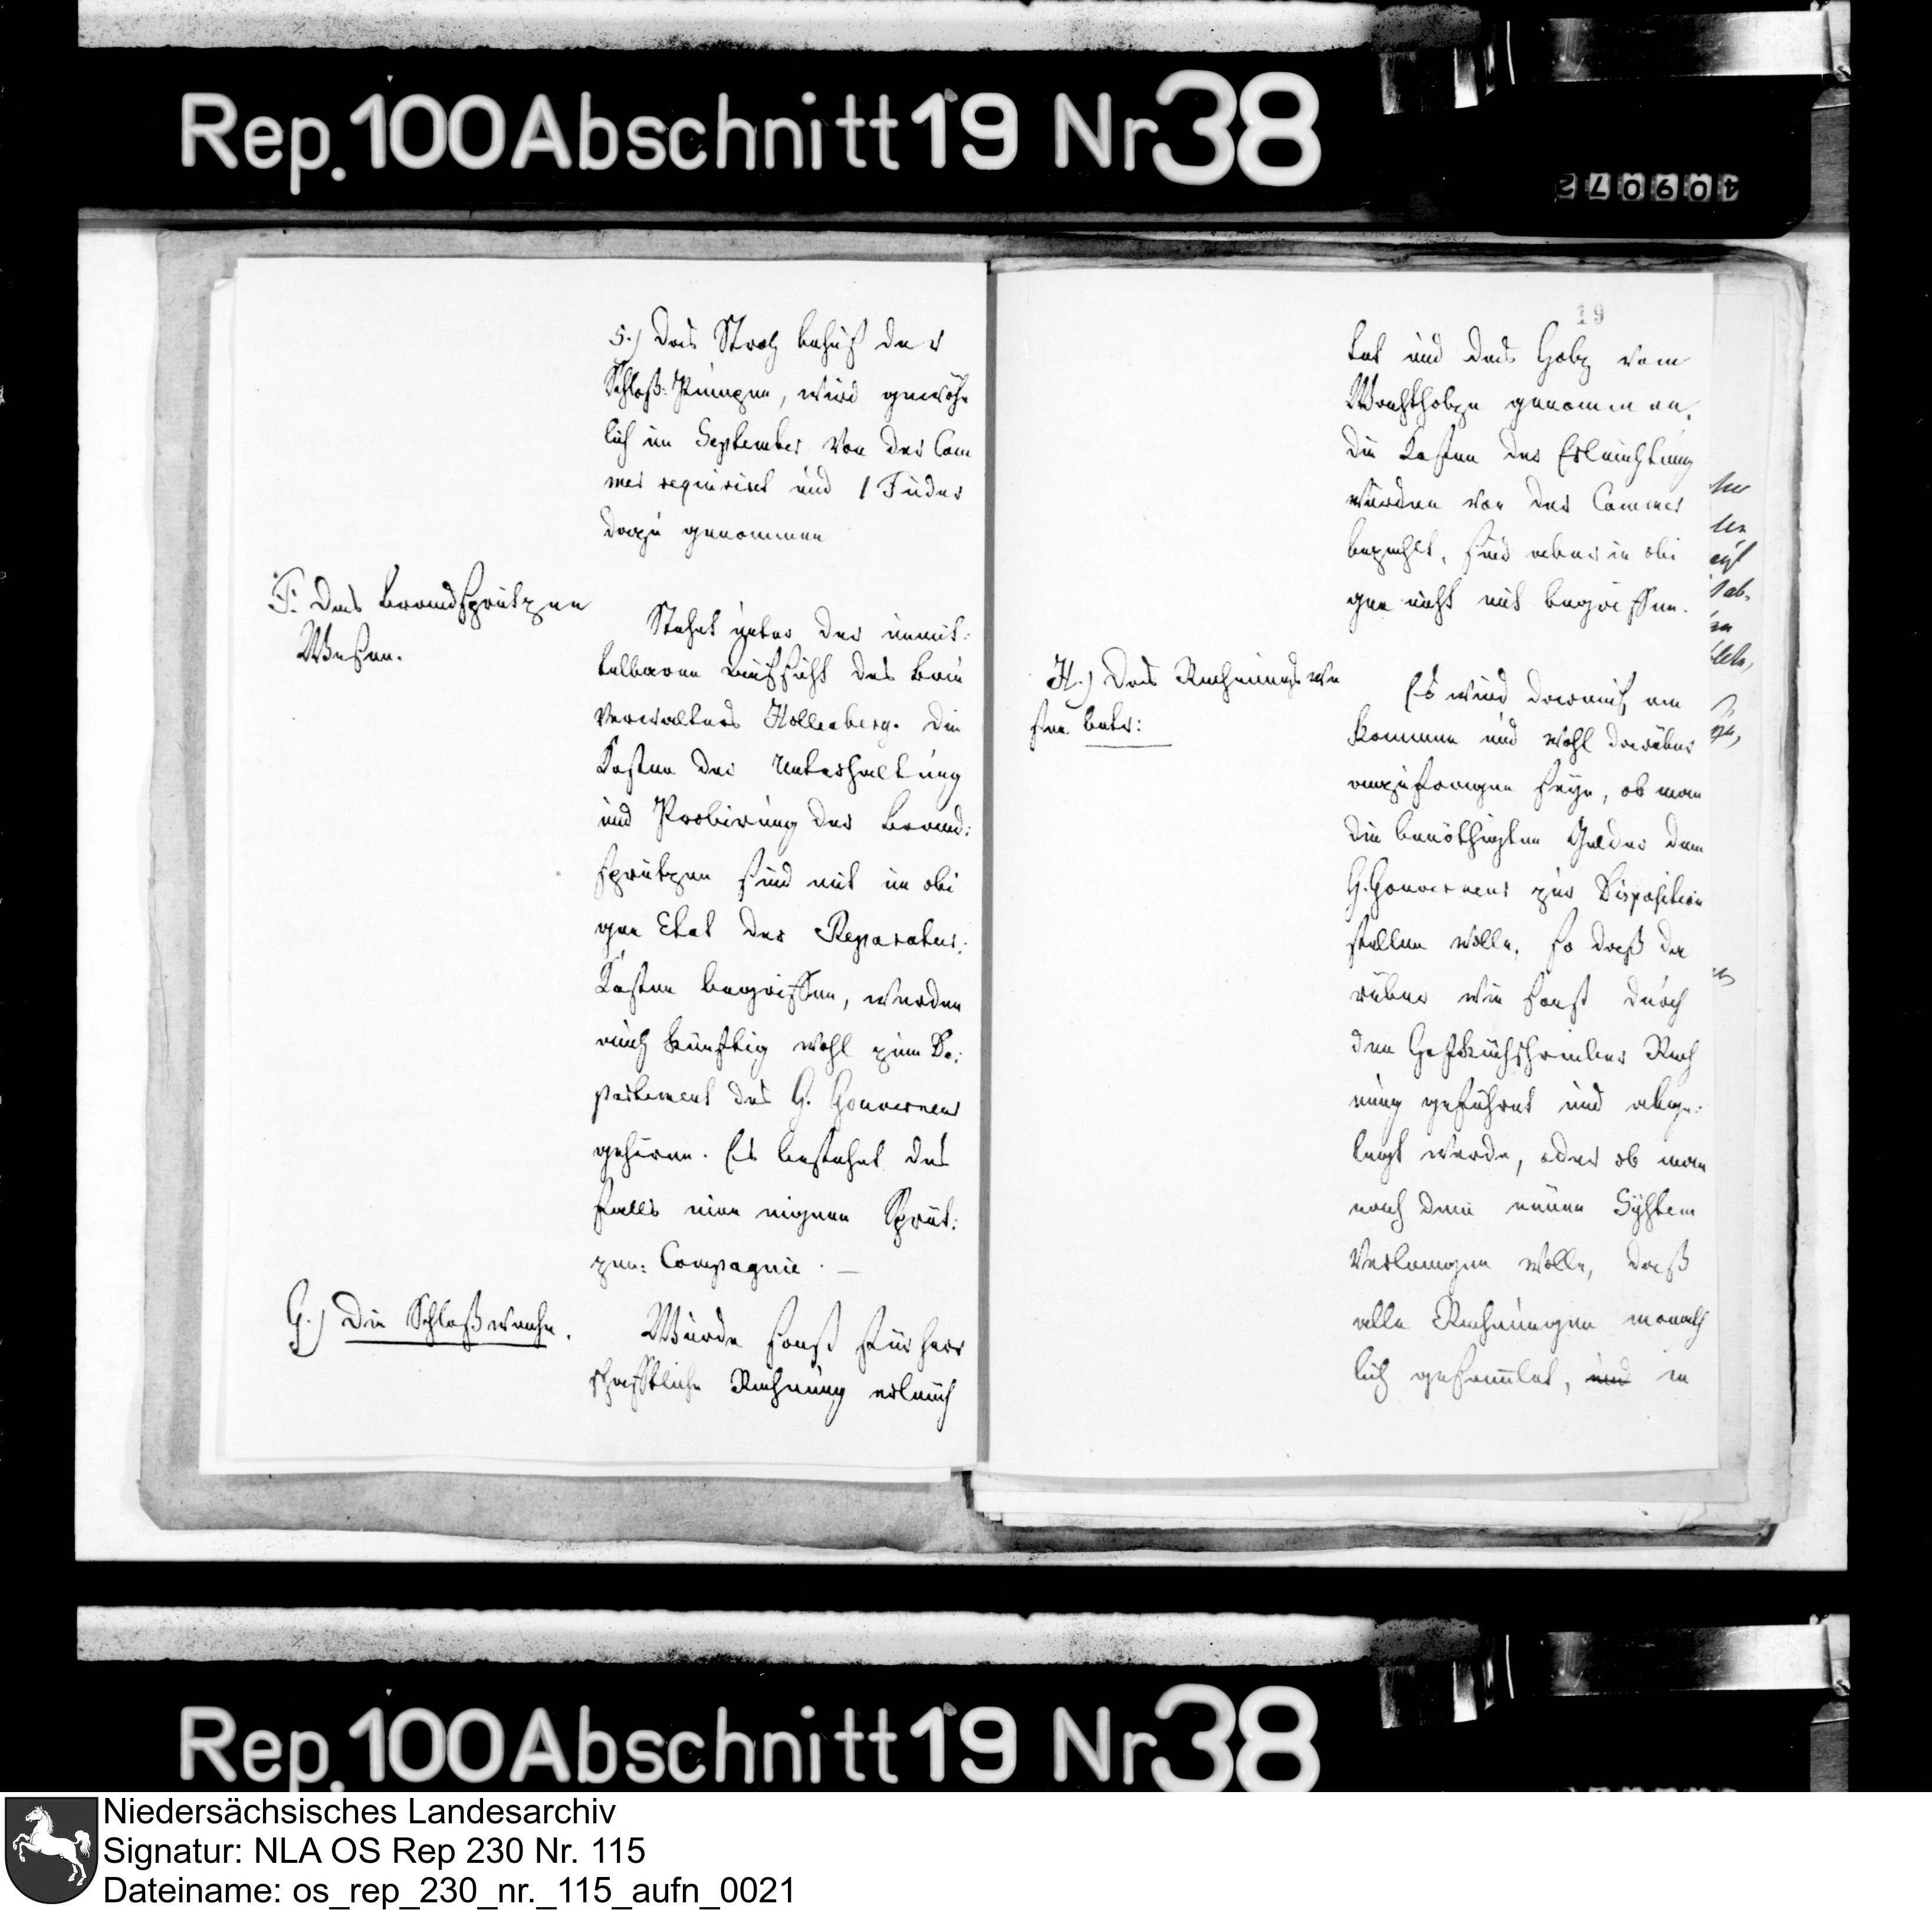 Rep. 100 Abschnitt 19 Nr 38
409072
5.) Das Stroh behuf der
Schloß-Pumpen, wird gewöhn
lich im September von der Cam
mer requirirt und 1 Fuder
dazu genommen
F. Das Brandsprützen
Wesen.
Stehet unter der unmit-
telbaren Aufsicht des Bau
Verwalters Hollenberg. Die
Kosten der Unterhaltung
und Probirung der Brand-
sprützen sind mit im obi
gen Etat der Reparatur-
Kosten begriffen, werden
auch künftig wohl zum De-
partement des G. Gouverneur
gehören. Es bestehet des
falls eine eigene Sprüt-
zen-Compagnie. —
G.) Die Schloßwache.
Würde sonst für herr
schafftliche Rechnung erleuch
19
tet und das Holz vom
Wachtholze genommen.
Die Kosten der Erleuchtung
wurden von der Cammer
bezahlt, sind aber in obi
gen nicht mit begriffen.
H.) Das Rechnungswe
sen betr:
Es wird darauf an
kommen und wohl darüber
anzufragen seyn, ob man
die benöthigten Gelder dem
G. Gouverneur zur Disposition
stellen wolle, so daß da
rüber wie sonst durch
den Hofküchschreiber Rech
nung geführet und abge-
legt werde, oder ob man
nach dem neuen System
Verlangen wolle, daß
alle Rechnungen monath
lich gesamlet, und in
Rep. 100 Abschnitt 19 Nr 38
Niedersächsisches Landesarchiv
Signatur: NLA OS Rep 230 Nr. 115
Dateiname: os_rep_230_nr._115_aufn_0021